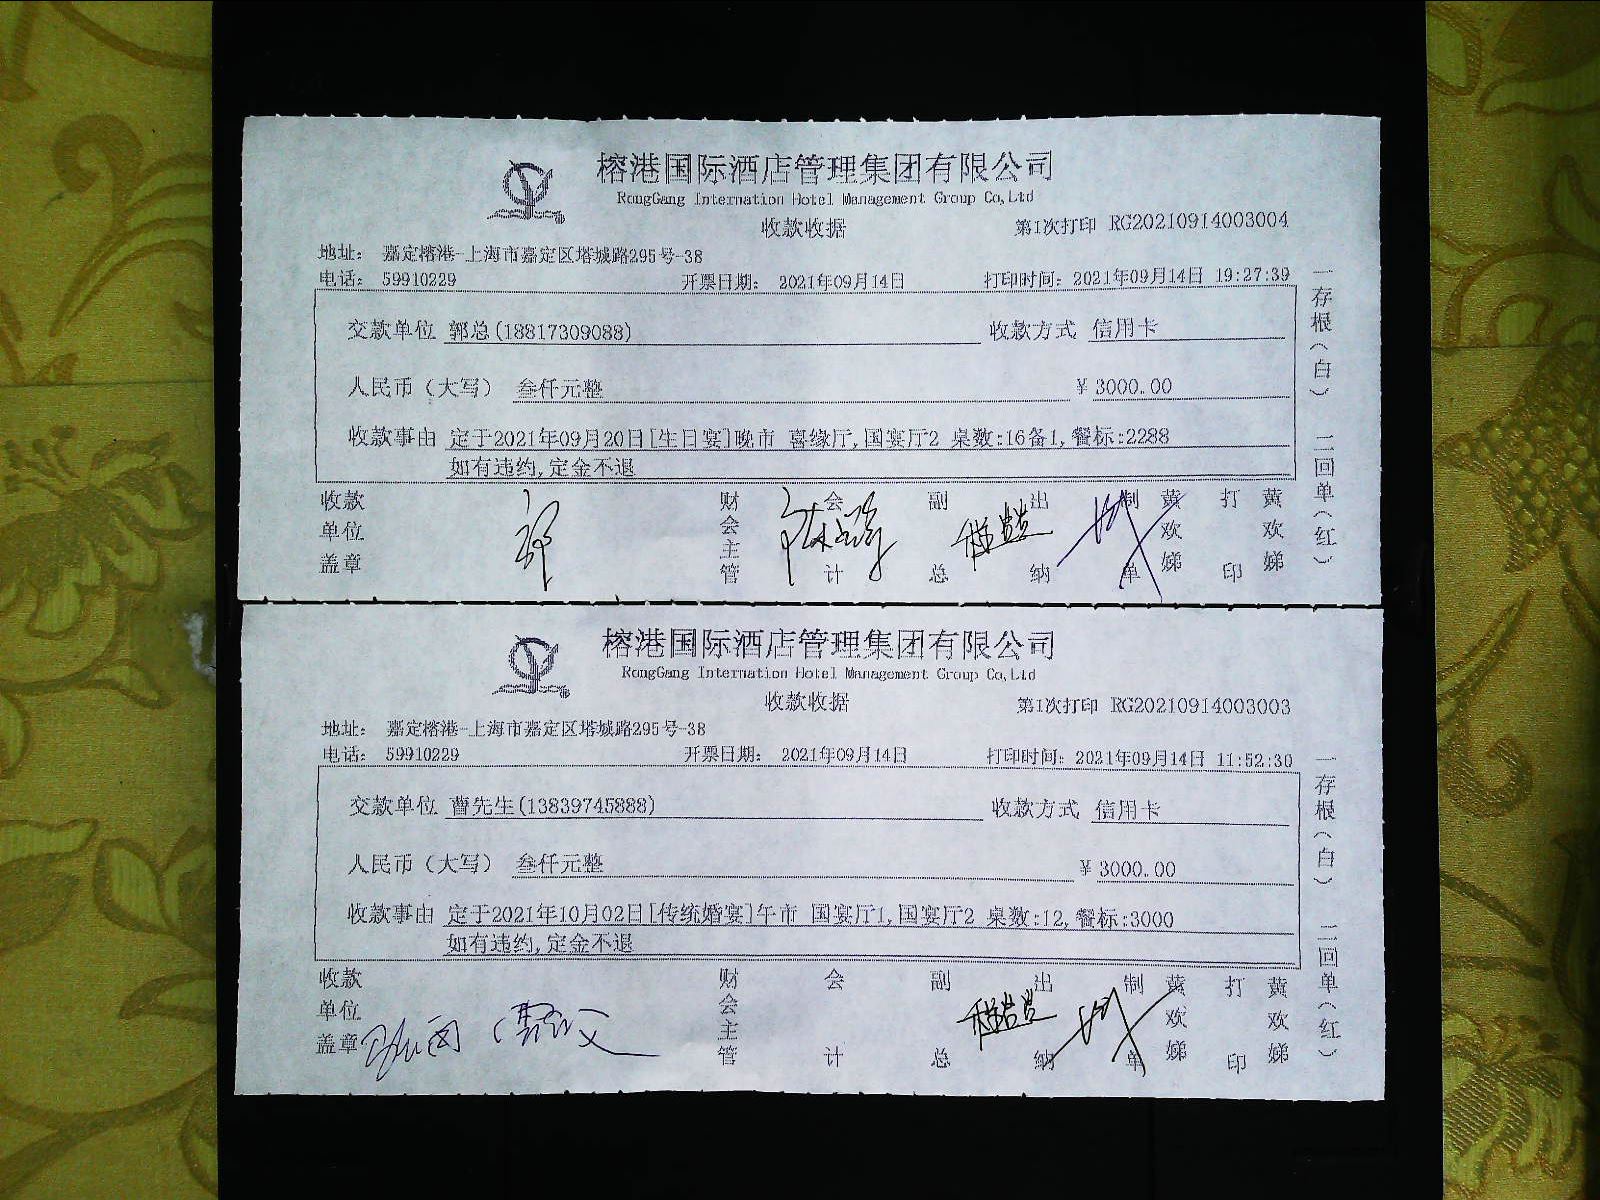 榕港国际酒店管理集团有限公司
RongGang Internation Hotel Management Group Co,Ltd
收款收据 第1次打印 RG20210914003004
地址： 嘉定榕港-上海市嘉定区塔城路295号-38
电话： 59910229 开票日期： 2021年09月14日 打印时间： 2021年09月14日 19:27:39
交款单位 郭总(18817309088) 收款方式 信用卡
人民币（大写） 叁仟元整 ￥3000.00
收款事由 定于2021年09月20日[生日宴]晚市 喜缘厅,国宴厅2 桌数:16备1,餐标:2288
如有违约,定金不退
收款单位盖章 财会主管 会计 副总 出纳 制单 黄欢娣 打印 黄欢娣
一存根（白） 二回单（红）
榕港国际酒店管理集团有限公司
RongGang Internation Hotel Management Group Co,Ltd
收款收据 第1次打印 RG20210914003003
地址： 嘉定榕港-上海市嘉定区塔城路295号-38
电话： 59910229 开票日期： 2021年09月14日 打印时间： 2021年09月14日 11:52:30
交款单位 曹先生(13839745888) 收款方式 信用卡
人民币（大写） 叁仟元整 ￥3000.00
收款事由 定于2021年10月02日[传统婚宴]午市 国宴厅1,国宴厅2 桌数:12,餐标:3000
如有违约,定金不退
收款单位盖章 财会主管 会计 副总 出纳 制单 黄欢娣 打印 黄欢娣
一存根（白） 二回单（红）